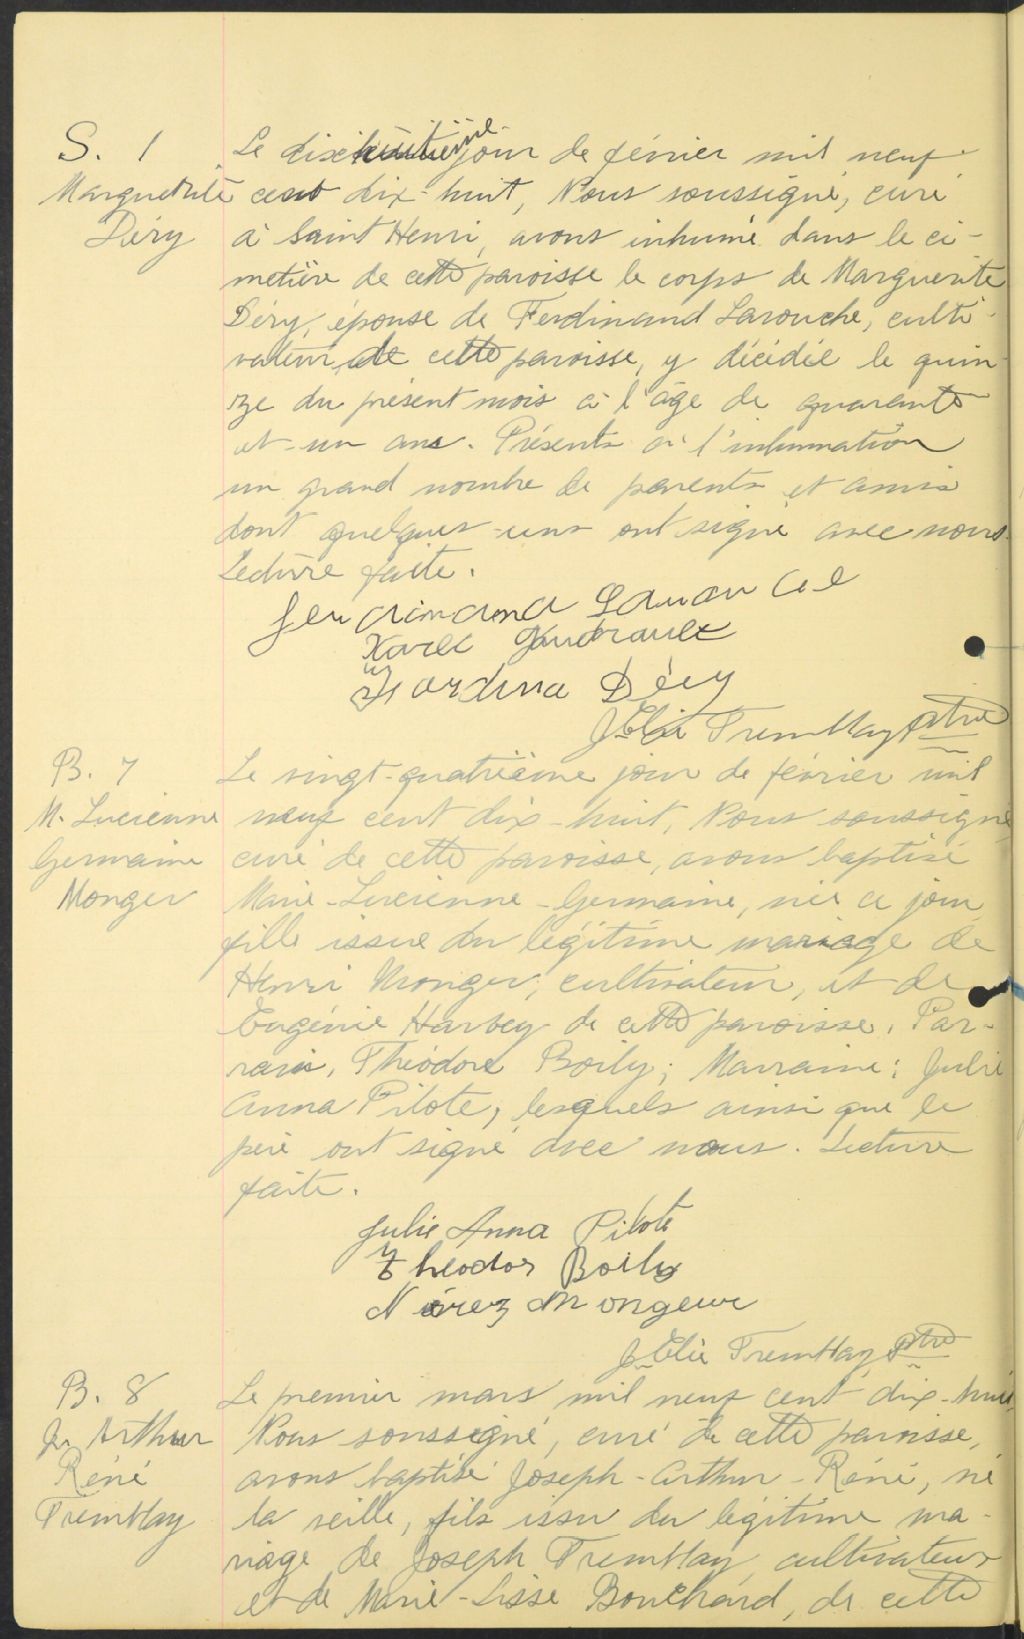 S. 1
Marguerite
Déry
Le dixhuitième jour de février mil neuf
cent dix-huit, Nous soussigné, curé
à Saint Henri, avons inhumé dans le ci-
metière de cette paroisse le corps de Marguerite
Déry, épouse de Ferdinand Larouche, culti-
vateur de cette paroisse, y décédée le quin-
ze du présent mois à l'âge de quarante
et-un ans. Présents à l'inhumation
un grand nombre de parents et amis
dont quelques-uns ont signé avec nous.
Lecture faite.
Gaudrault
Déry
J. Elie Tremblay ptre
B. 7
M. Lucienne
Germaine
Monger
Le vingt-quatrième jour de février mil
neuf cent dix-huit, Nous soussigné,
curé de cette paroisse, avons baptisé
Marie-Lucienne-Germaine, née ce jour,
fille issue du légitime mariage de
Henri Monger, cultivateur, et de
Eugénie Harvey de cette paroisse. Par-
rain, Théodore Boily; Marraine: Julie
Anna Pilote, lesquels ainsi que le
père ont signé avec nous. Lecture
faite.
Julie Anna Pilote
Theodor Boily
Mongeur
J. Elie Tremblay, Ptre
B. 8
J. Arthur
Réné
Tremblay
Le premier mars mil neuf cent dix-huit,
Nous soussigné, curé de cette paroisse,
avons baptisé Joseph-Arthur-Réné, né
la veille, fils issu du légitime ma-
riage de Joseph Tremblay, cultivateur
et de Marie-Lisse Bouchard, de cette